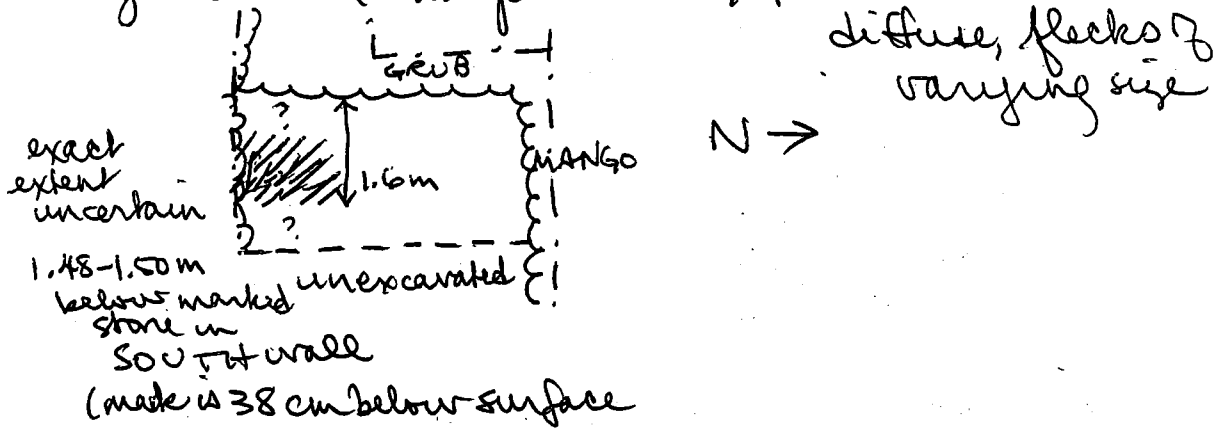 diffuse, flecks of
varying size
GRUB
N →
?
exact
extent
uncertain
1.6m
MANGO
?
1.48-1.50m
below marked
stone in
SOUTH wall
(mark is 38 cm below surface
unexcavated